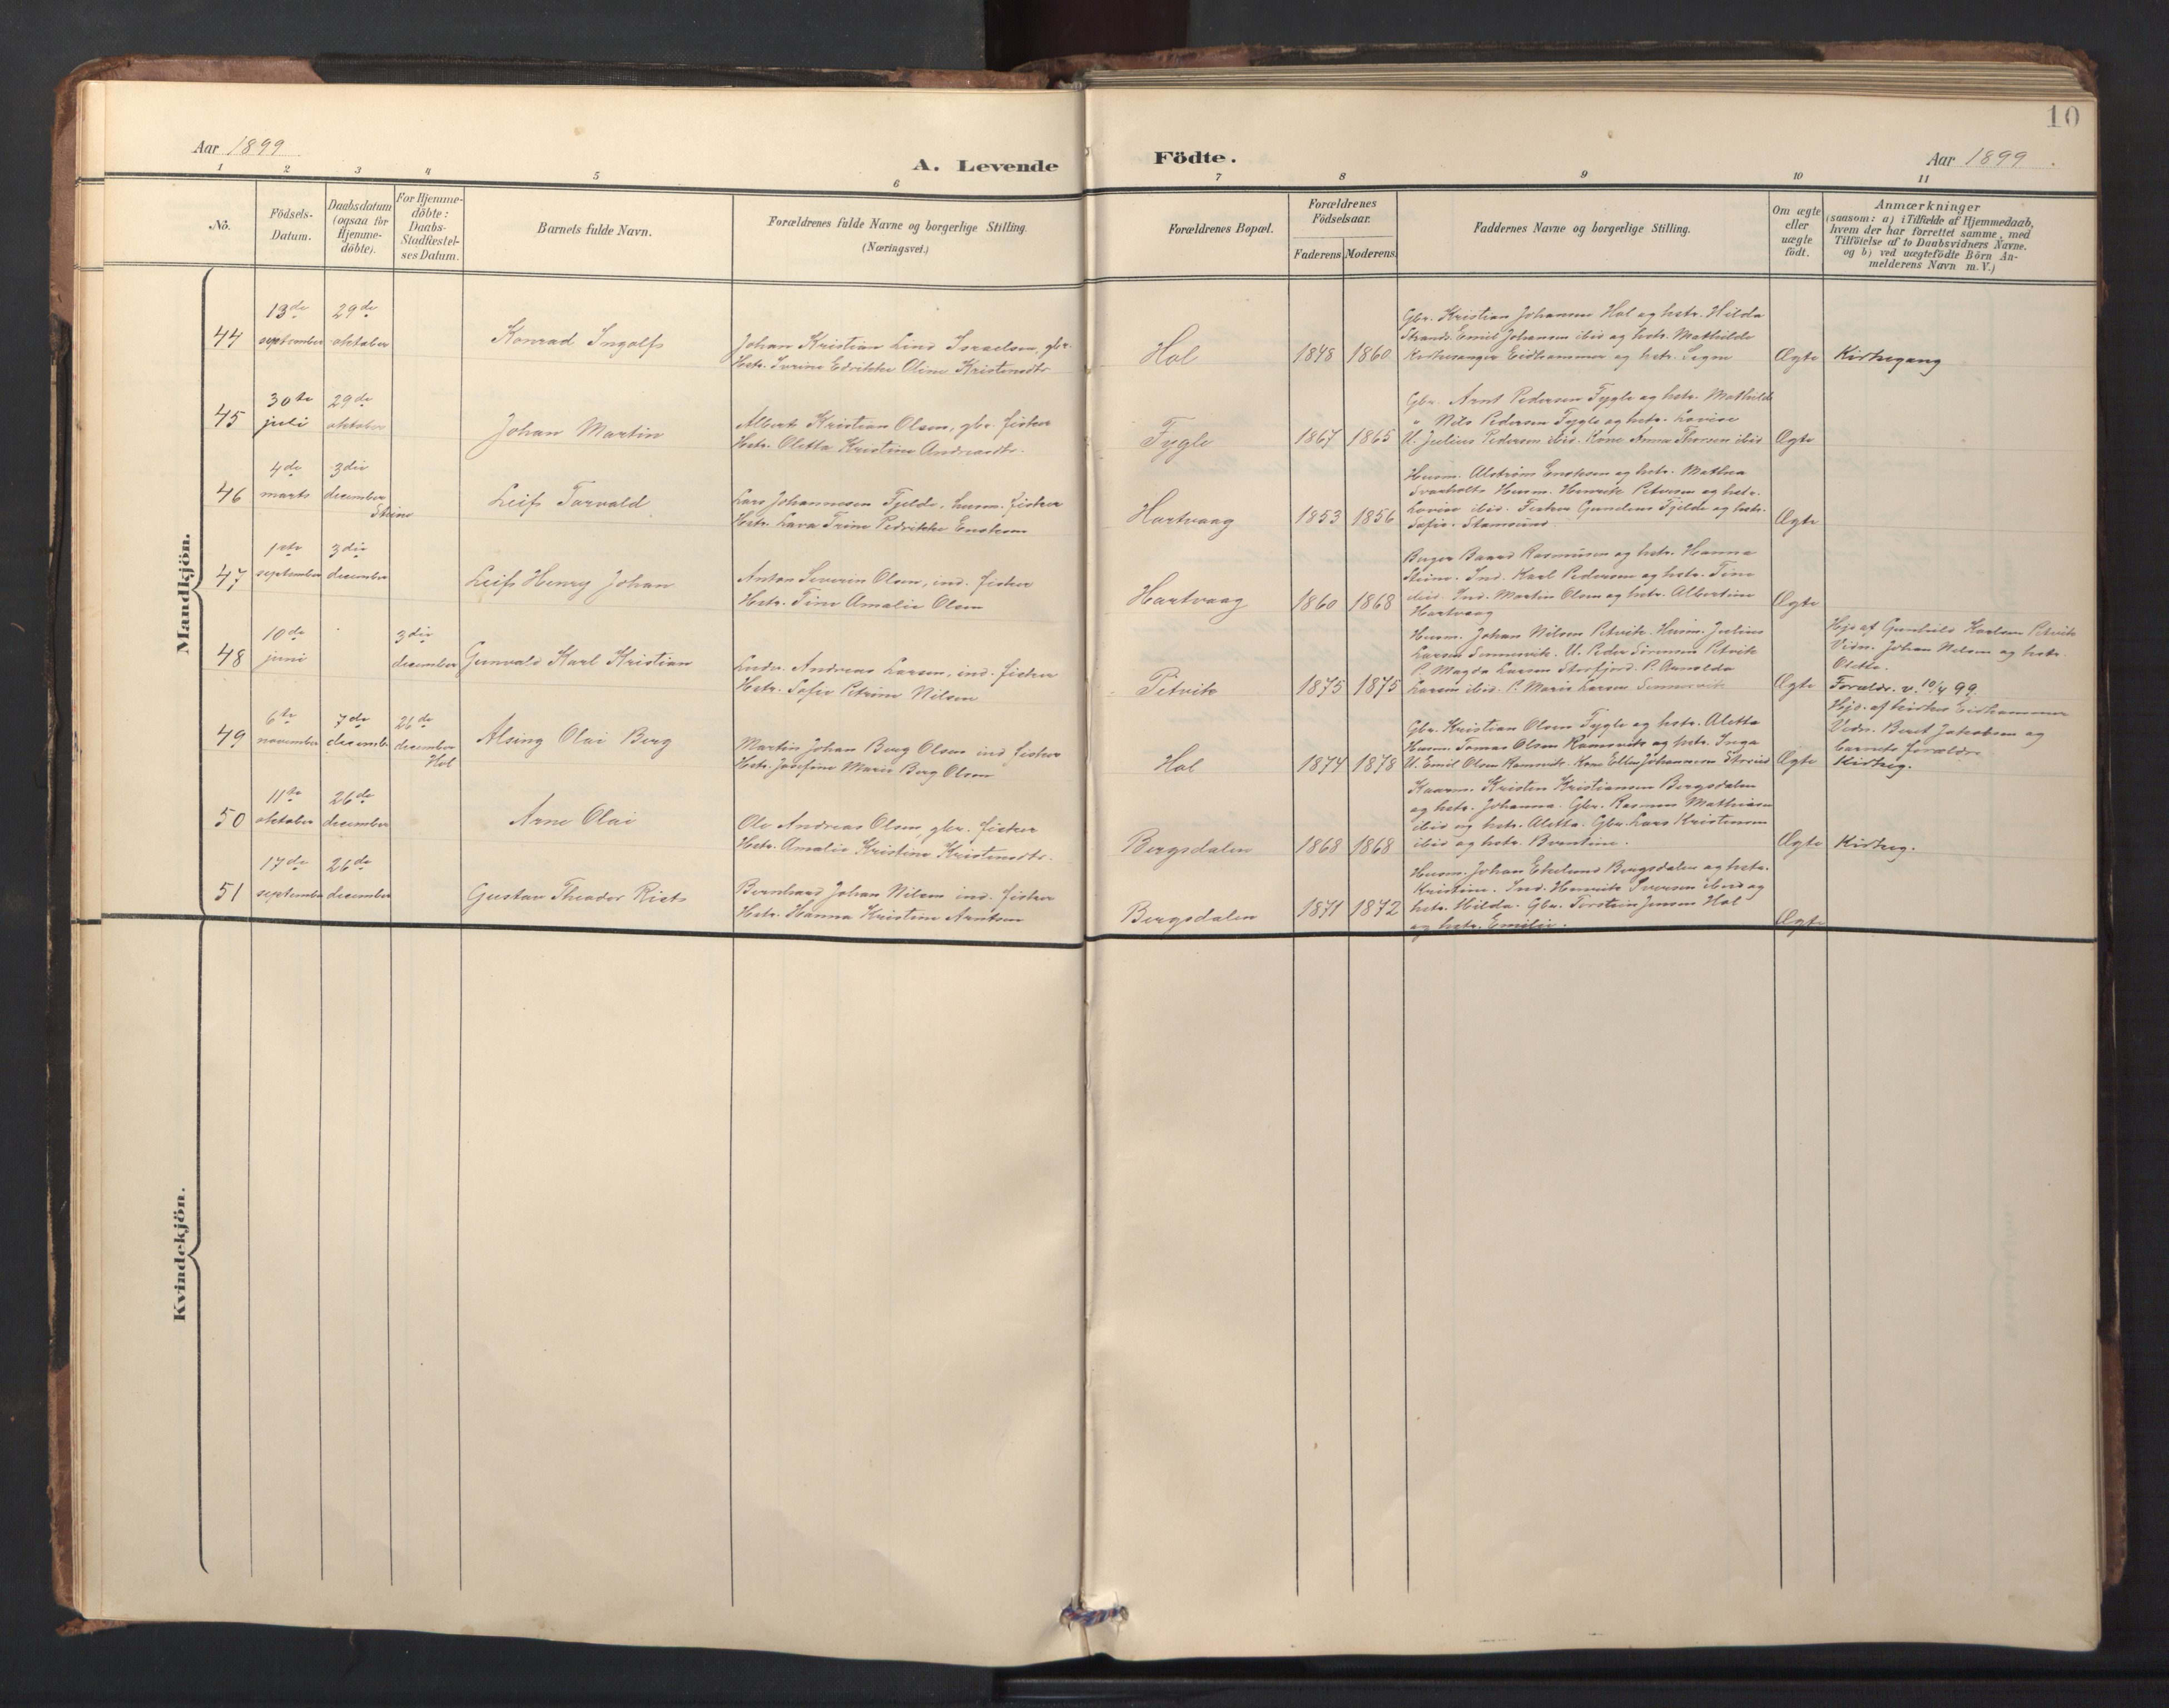 10
Aar 1899
A. Levende Födte.
Aar 1899.
1 2 3 4 5 6 7 8 9 10 11
No.
Födsels-
Datum.
Daabsdatum
(ogsaa for
Hjemme-
döbte).
For Hjemme-
döbte:
Daabs-
Stadfæstel-
ses Datum.
Barnets fulde Navn.
Forældrenes fulde Navne og borgerlige Stilling.
(Næringsvei.)
Forældrenes Bopæl.
Forældrenes
Födselsaar.
Faderens Moderens
Faddernes Navne og borgerlige Stilling.
Om ægte
eller
uægte
födt.
Anmærkninger
(saasom: a) i Tilfælde af Hjemmedaab,
hvem der har forrettet samme, med
Tilföielse af to Daabsvidners Navne,
og b) ved uægtefödte Börn An-
melderens Navn m. V.)
Mandkjön.
44
13de
september
29de
oktober
Konrad Ingolf
Johan Kristian Lind Israelsen, gbr.
Hstr. Oline Kristensdtr
Hol
1848 1860
Gbr. Kristian Johansen Hol og hstr. Hilda
Strand. Emil Johansen ibid og hstr. Mathilde
Kirkesanger Eidhammer og hstr. Signe
Ægte
Kirkegang
45
30te
juli
29de
oktober
Johan Martin
Albert Kristian Olsen, gbr. fisker
Hstr. Oletta Kristine Andreasdtr.
Fygle
1867 1865
Gbr. Arnt Pedersen Fygle og hstr. Mathilde
" Nils Pedersen Fygle og hstr. Lovise
U. Julius Pedersen ibid. Kone Anna Thorsen ibid
Ægte
46
4de
marts
3die
december
Steine
Leif Torvald
Lars Johannesen Fjelde, husm. fisker
Hstr. Lava Trine Pedrikke Enoksen
Hartvaag
1853 1856
Husm. Alstrøm Enoksen og hstr. Mathea
Svarholt. Husm. Henrik Petersen og hstr.
Lovise ibid. Fisker Gundrus Fjelde og hstr.
Sofie. Stamsund
Ægte
47
1ste
september
3die
december
Leif Henry Johan
Anton Severin Olsen, ind. fisker
Hstr. Tine Amalie Olsen
Hartvaag
1860 1868
Baard Rasmussen og hstr. Hanna
Steine. Ind. Karl Pedersen og hstr. Tine
ibid. Ind. Martin Olsen og hstr. Albertine
Hartvaag
Ægte
48
10de
juni
3die
december
Gunvald Karl Kristian
Ludv. Andreas Larsen, ind. fisker
Hstr. Sofie Petrine Nilsen
Petvik
1875 1875
Husm. Johan Nilsen Petvik. Husm. Julius
Larsen Sennesvik. U. Peder Sørensen Petvik
P. Magda Larsen Storfjord. P. Arnolda
Larsen ibid. P. Marie Larsen Sennesvik
Ægte
Hjd. af Gunhild Karlsen Petvik
Vidn. Johan Nilsen og hstr.
Oletta.
Forældr. v. 10/4 99.
49
6te
november
7de
decemb.
26de
december
Hol
Alsing Olai Berg
Martin Johan Berg Olsen ind fisker
Hstr. Josefine Marie Berg Olsen
Hol
1874 1878
Gbr. Kristian Olsen Fygle og hstr. Aletta
Husm. Tomas Olsen Ramsvik og hstr. Inga
U. Emil Olsen Ramsvik. Kone Ellen Johannesen
Ægte
Hjd. af kirkes. Eidhammer
Vidn. Berit Jakobsen og
barnets forældre
Kirkeg.
50
11te
oktober
26de
december
Arne Olai
Ole Andreas Olsen, gbr. fisker
Hstr. Amalie Kristine Kristensdtr.
Bergsdalen
1868 1868
Kaarm. Kristen Kristiansen Bergsdalen
og hstr. Johanna. Gbr. Rasmus Mathisen
ibid og hstr. Aletta. Gbr. Lars Kristensen
ibid og hstr. Berntine.
Ægte
Kirkeg.
51
17de
september
26de
december
Gustav Theodor Rists
Bernhard Johan Nilsen ind. fisker
Hstr. Hanna Kristine Arntsen
Bergsdalen
1871 1872
Husm. Johan Ekelund Bergsdalen og hstr.
Kristine. Ind. Henrik Iversen ibid og
hstr. Hilda. Gbr. Torstein Jensen Hol
og hstr. Emilie.
Ægte
Kvindekjön.